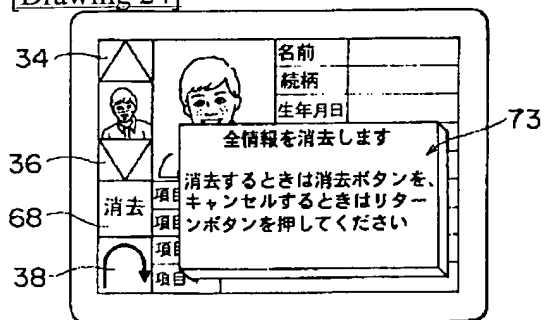 [Drawing 24]
34
名前
続柄
生年月日
73
全情報を消去します
36
消去するときは消去ボタンを、
キャンセルするときはリター
ンボタンを押してください
68
消去
項目
項目
38
項目
項目